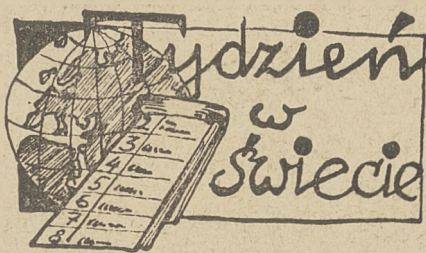 Tydzień
w
świecie
2
3
4
5
6
7
8